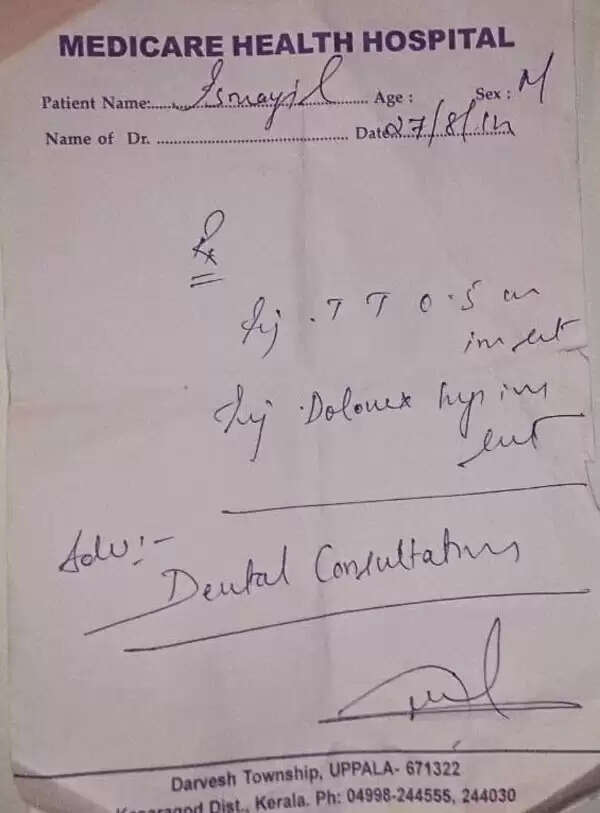 MEDICARE HEALTH HOSPITAL
Patient Name: Ismayil Age : Sex : M
Name of Dr. Date 27/8/14
Rx
Inj . T T 0.5 cc
im stat
Inj . Dolonex 1amp im
stat
Adv :-
Dental Consultation
Darvesh Township, UPPALA- 671322
Kasaragod Dist., Kerala. Ph: 04998-244555, 244030